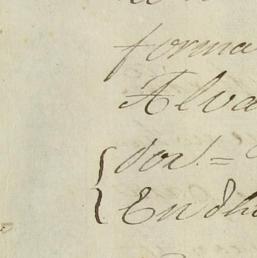 forma
Alva
dor. =
En dh